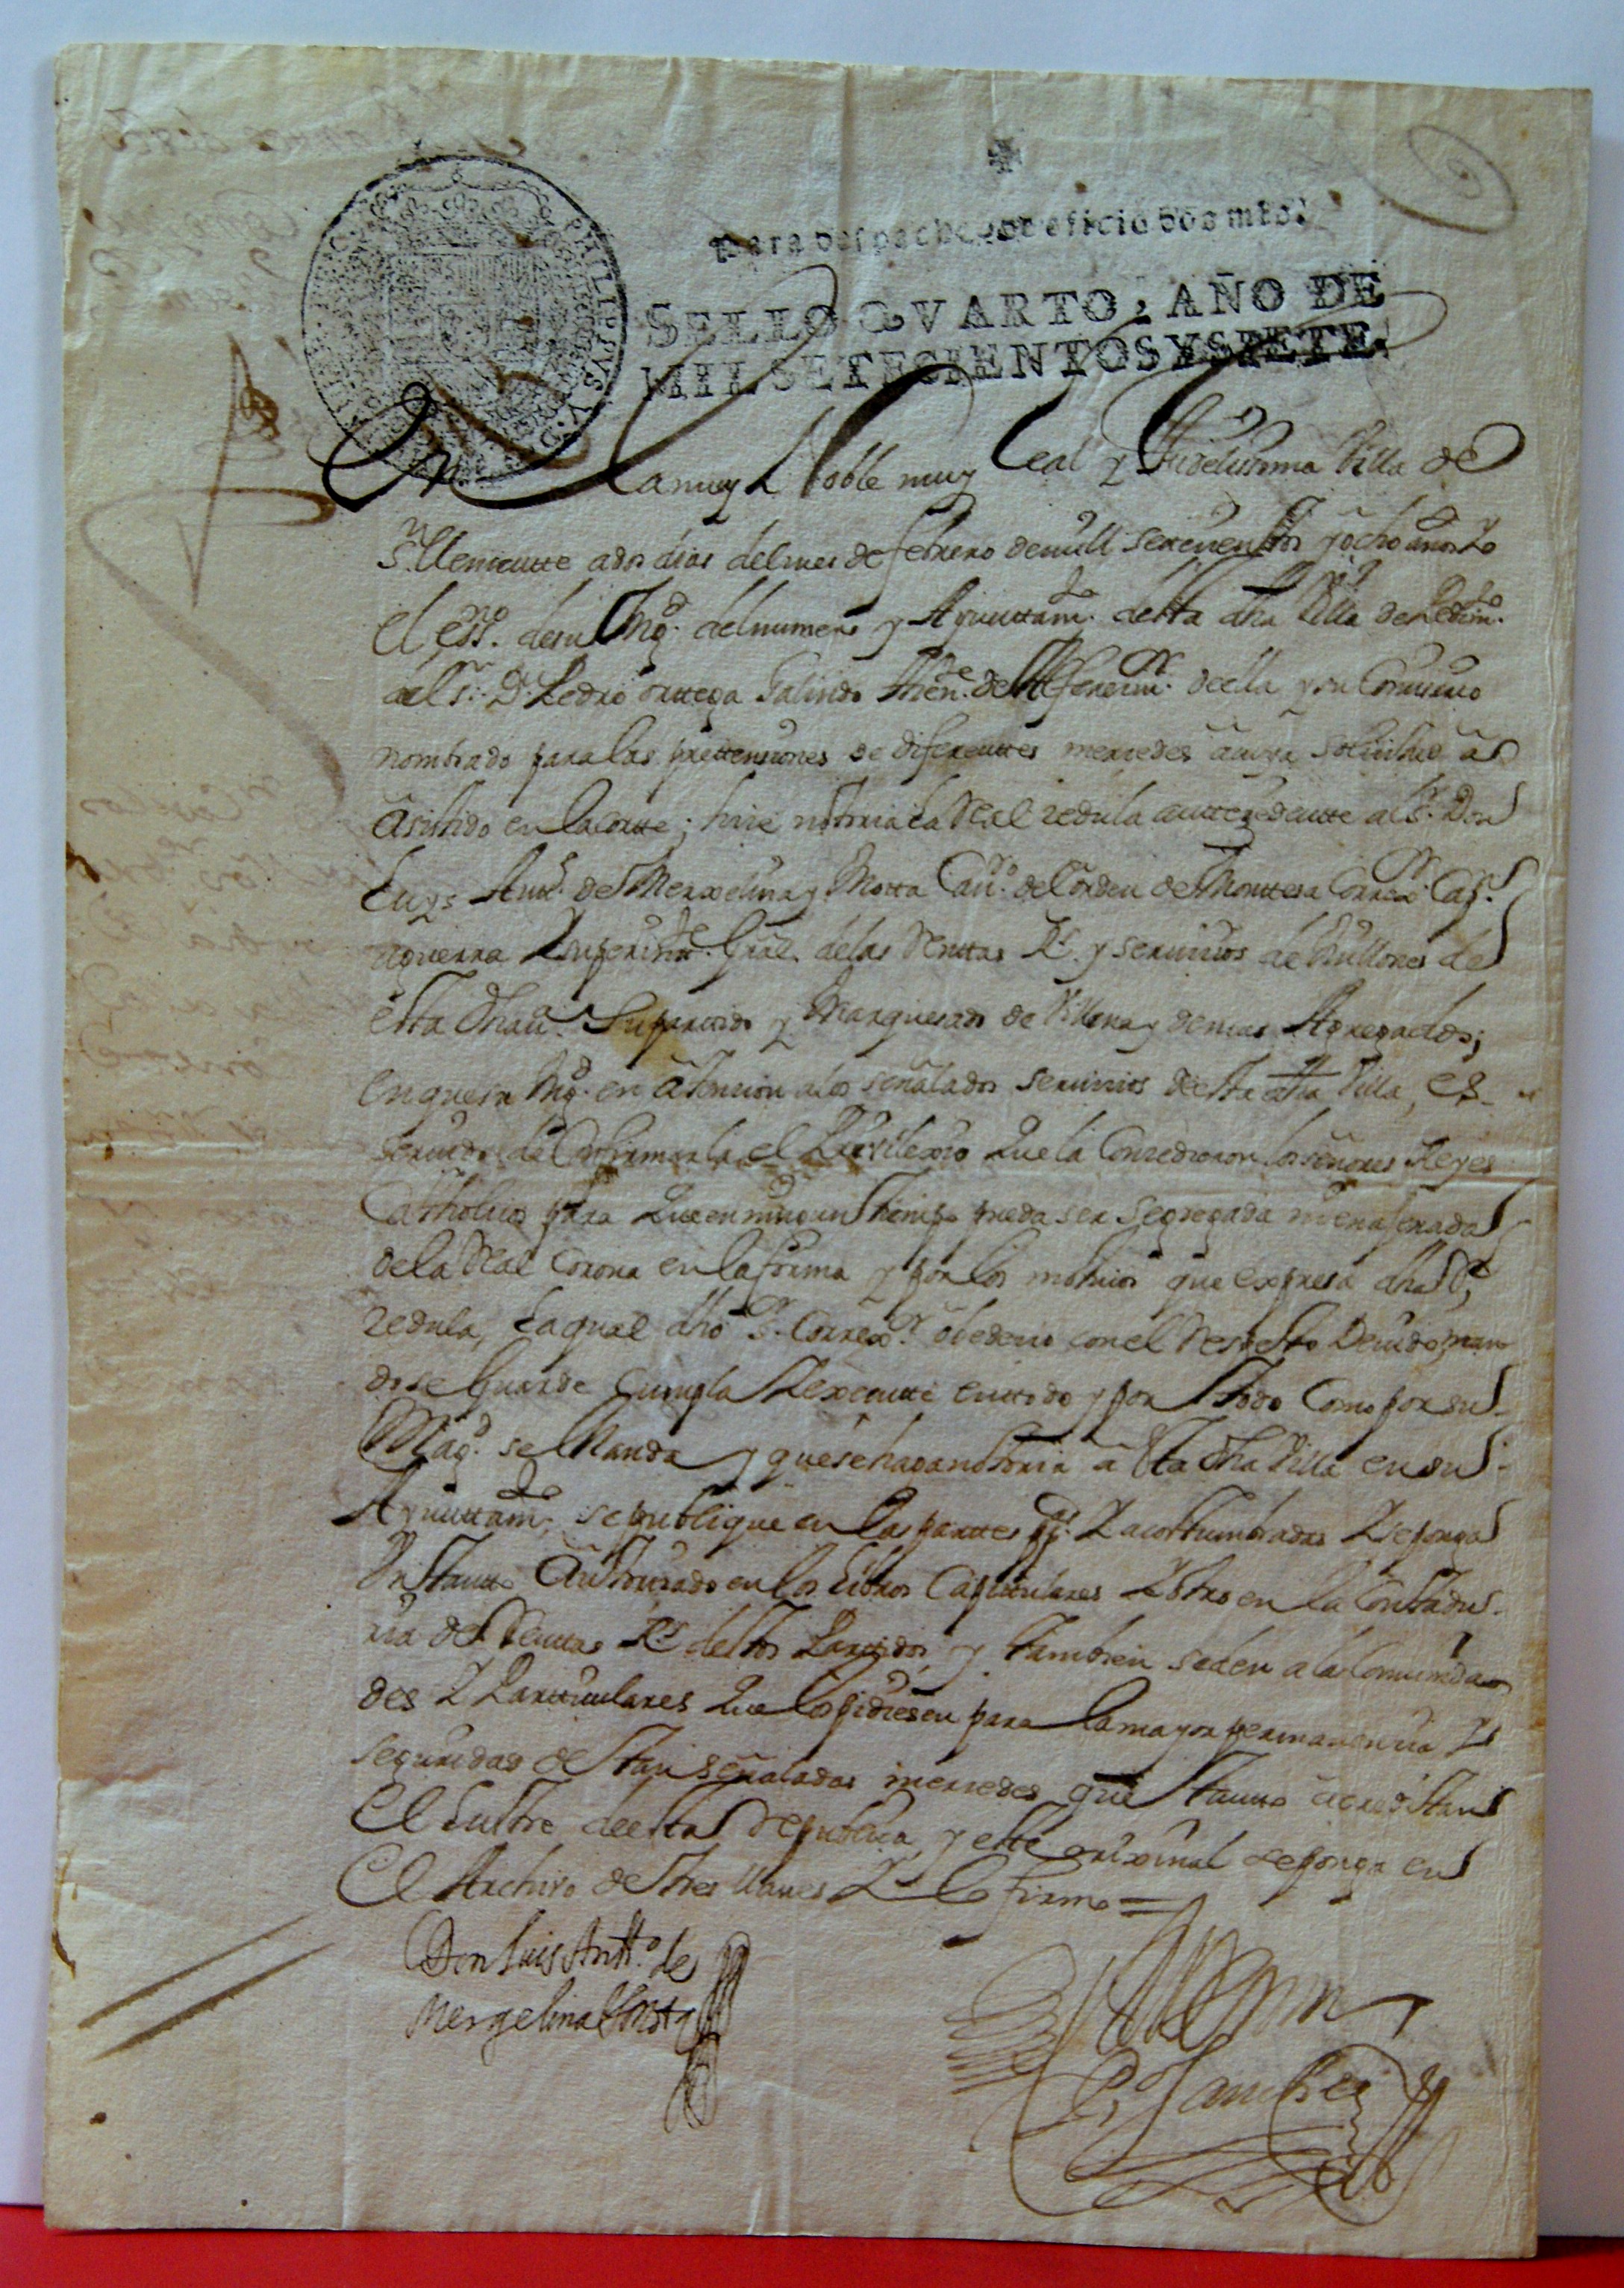 Para despachos de oficio dos mrs.
SELLO QVARTO, AÑO DE
MIL SETECIENTOS Y SIETE.
PHILIPPVS V D G
En La muy Noble muy Leal y Fidelisima Villa de
Sn. Clemente a dos dias del mes de febrero de mill setecientos y ocho años Yo
el essno. de su Mgd. del numero y Ayuntamto. desta dha Villa de Pedimto.
del Sr. Dn. Pedro ortega Galindo Thente. de Alferez mor. de ella y su Comisario
nombrado para las prettensiones de diferenttes mercedes a cuya solicitud a
asistido en la Corte; hice notoria la Real zedula anttezedentte al Sr. Don
Luys Antto. de Merxelina y Motta Cauo. del orden de Monttesa Correxor. Capn.
aguerra Y superintte. Gral. de las Renttas Rs. y seruicios de Millones de
esta Dha Va. Su partido y Marquesado de Villena y demas Agregados;
en que su Mgd. en atencion a los señalados seruicios de esta dha Villa, es
seruido de Confirmarla el Priuilexio Que la Concedieron los señores Reyes
Catholicos para Que en ningun tiempo pueda ser segregada ni enaxenada
de la Real Corona en la forma y por los motiuos que expresa dha Rl.
zedula, La qual dho Sr. Correxor. obedecio con el Respecto Deuido y man
do se Guarde Cumpla Y execute en ttodo y por ttodo Como por su
Magd. se Manda y que se haga notoria a esta dha Villa en su
Ayunttamto. se publique en las parttes pps. Y acostumbradas Y se ponga
Vn ttantto Autorizado en los Libros Capitulares Y otro en la Contadu-
ria de Renttas Rs. de esttos Parttidos, y tambien se den a las Comunida
des Y Partticulares Que los pidiesen para la mayor permanencia Y
seguridad de tan señaladas mercedes que ttantto acreditan
el Lustre de esta Republica, y este orixinal se ponga en
el Archivo de tres llaues Y lo firmo =
Don Luis Antto. de
Mergelina y Mota
Sanchez